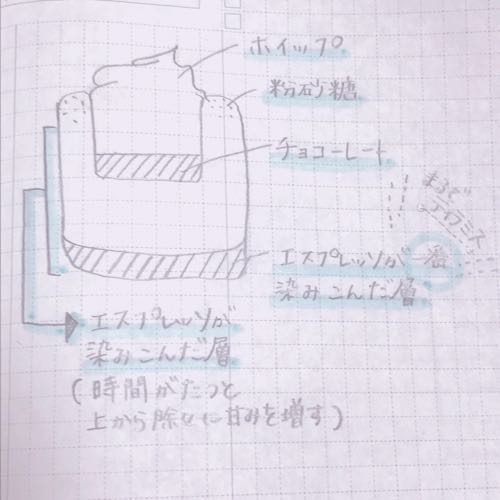 ホイップ
粉砂糖
チョコレート
まるで
ティラミス
エスプレッソが
染みこんだ層
層
エスプレッソが
染みこんだ層
(時間がたつと
上から除々に甘みを増す)